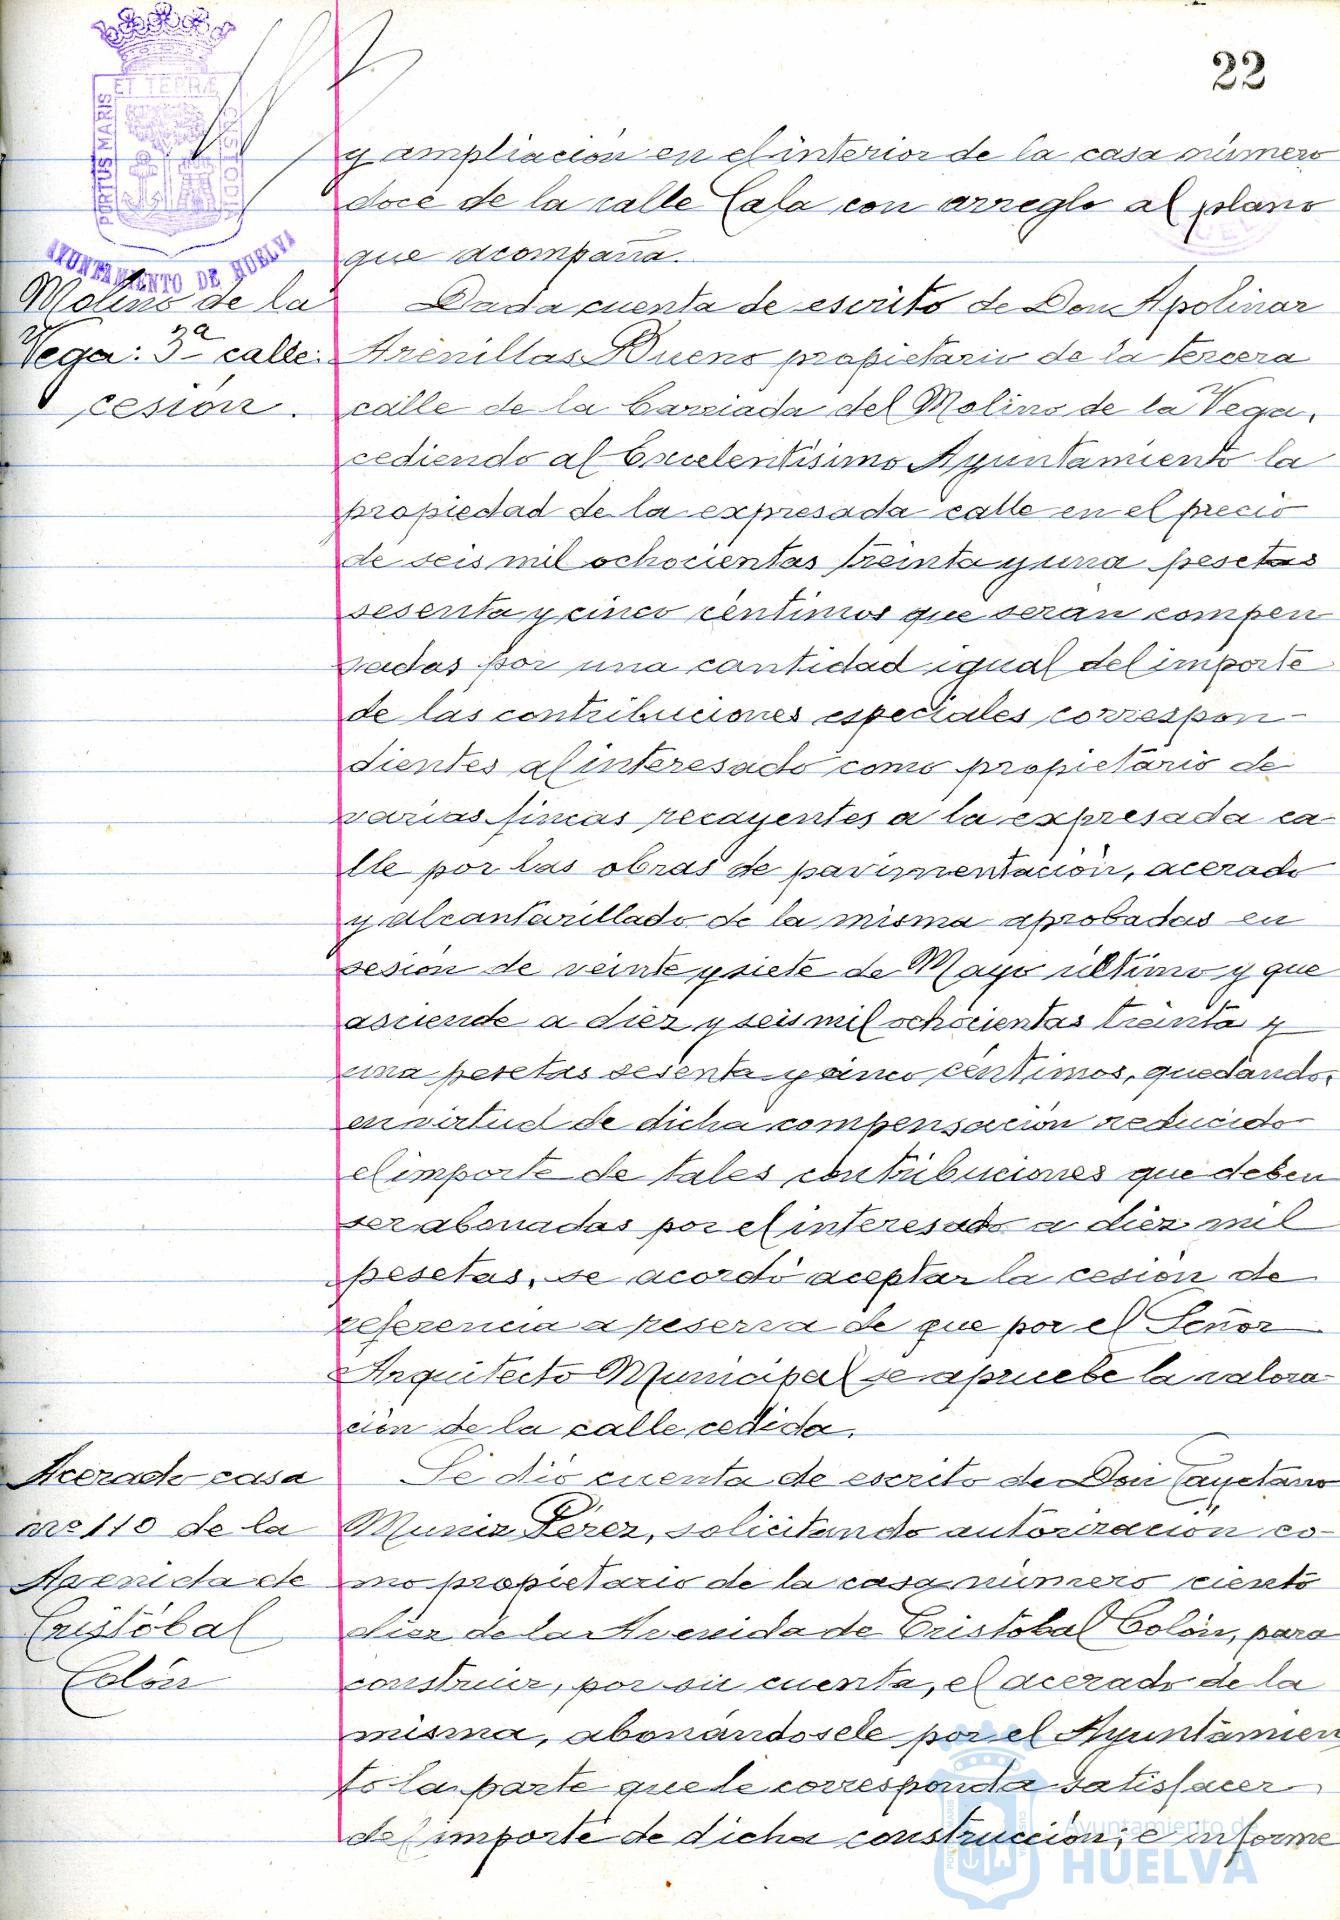 22
PORTUS MARIS ET TERRÆ CUSTODIA
AYUNTAMIENTO DE HUELVA
y ampliación en el interior de la casa número
doce de la calle Cala con arreglo al plano
que acompaña.
Molino de la
Vega: 3ª calle:
cesión.
Dada cuenta de escrito de Don Apolinar
Arenillas Bueno propietario de la tercera
calle de la barriada del Molino de la Vega,
cediendo al Excelentísimo Ayuntamiento la
propiedad de la expresada calle en el precio
de seis mil ochocientas treinta y una pesetas
sesenta y cinco céntimos que serán compen
sadas por una cantidad igual del importe
de las contribuciones especiales correspon-
dientes al interesado como propietario de
varias fincas recayentes a la expresada ca-
lle por las obras de pavimentación, acerado
y alcantarillado de la misma aprobadas en
sesión de veinte y siete de Mayo último y que
asciende a diez y seis mil ochocientas treinta y
una pesetas sesenta y cinco céntimos, quedando,
en virtud de dicha compensación reducido
el importe de tales contribuciones que deben
ser abonadas por el interesado a diez mil
pesetas, se acordó aceptar la cesión de
referencia a reserva de que por el Señor
Arquitecto Municipal se apruebe la valora-
ción de la calle cedida.
Acerado casa
nº 110 de la
Avenida de
Cristóbal
Colón
Se dió cuenta de escrito de Don Cayetano
Muniz Pérez, solicitando autorización co-
mo propietario de la casa número ciento
diez de la Avenida de Cristóbal Colón, para
construir, por su cuenta, el acerado de la
misma, abonándosele por el Ayuntamien
to la parte que le corresponda satisfacer
del importe de dicha construcción; e informe
Ayuntamiento de
HUELVA